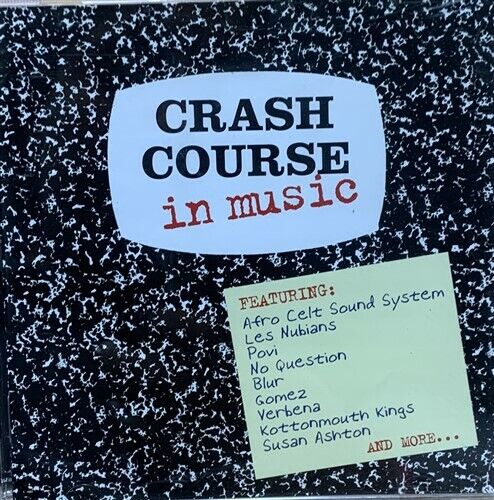 CRASH
COURSE
in music
FEATURING:
Afro Celt Sound System
Les Nubians
Povi
No Question
Blur
Gomez
Verbena
Kottonmouth Kings
Susan Ashton
AND MORE...